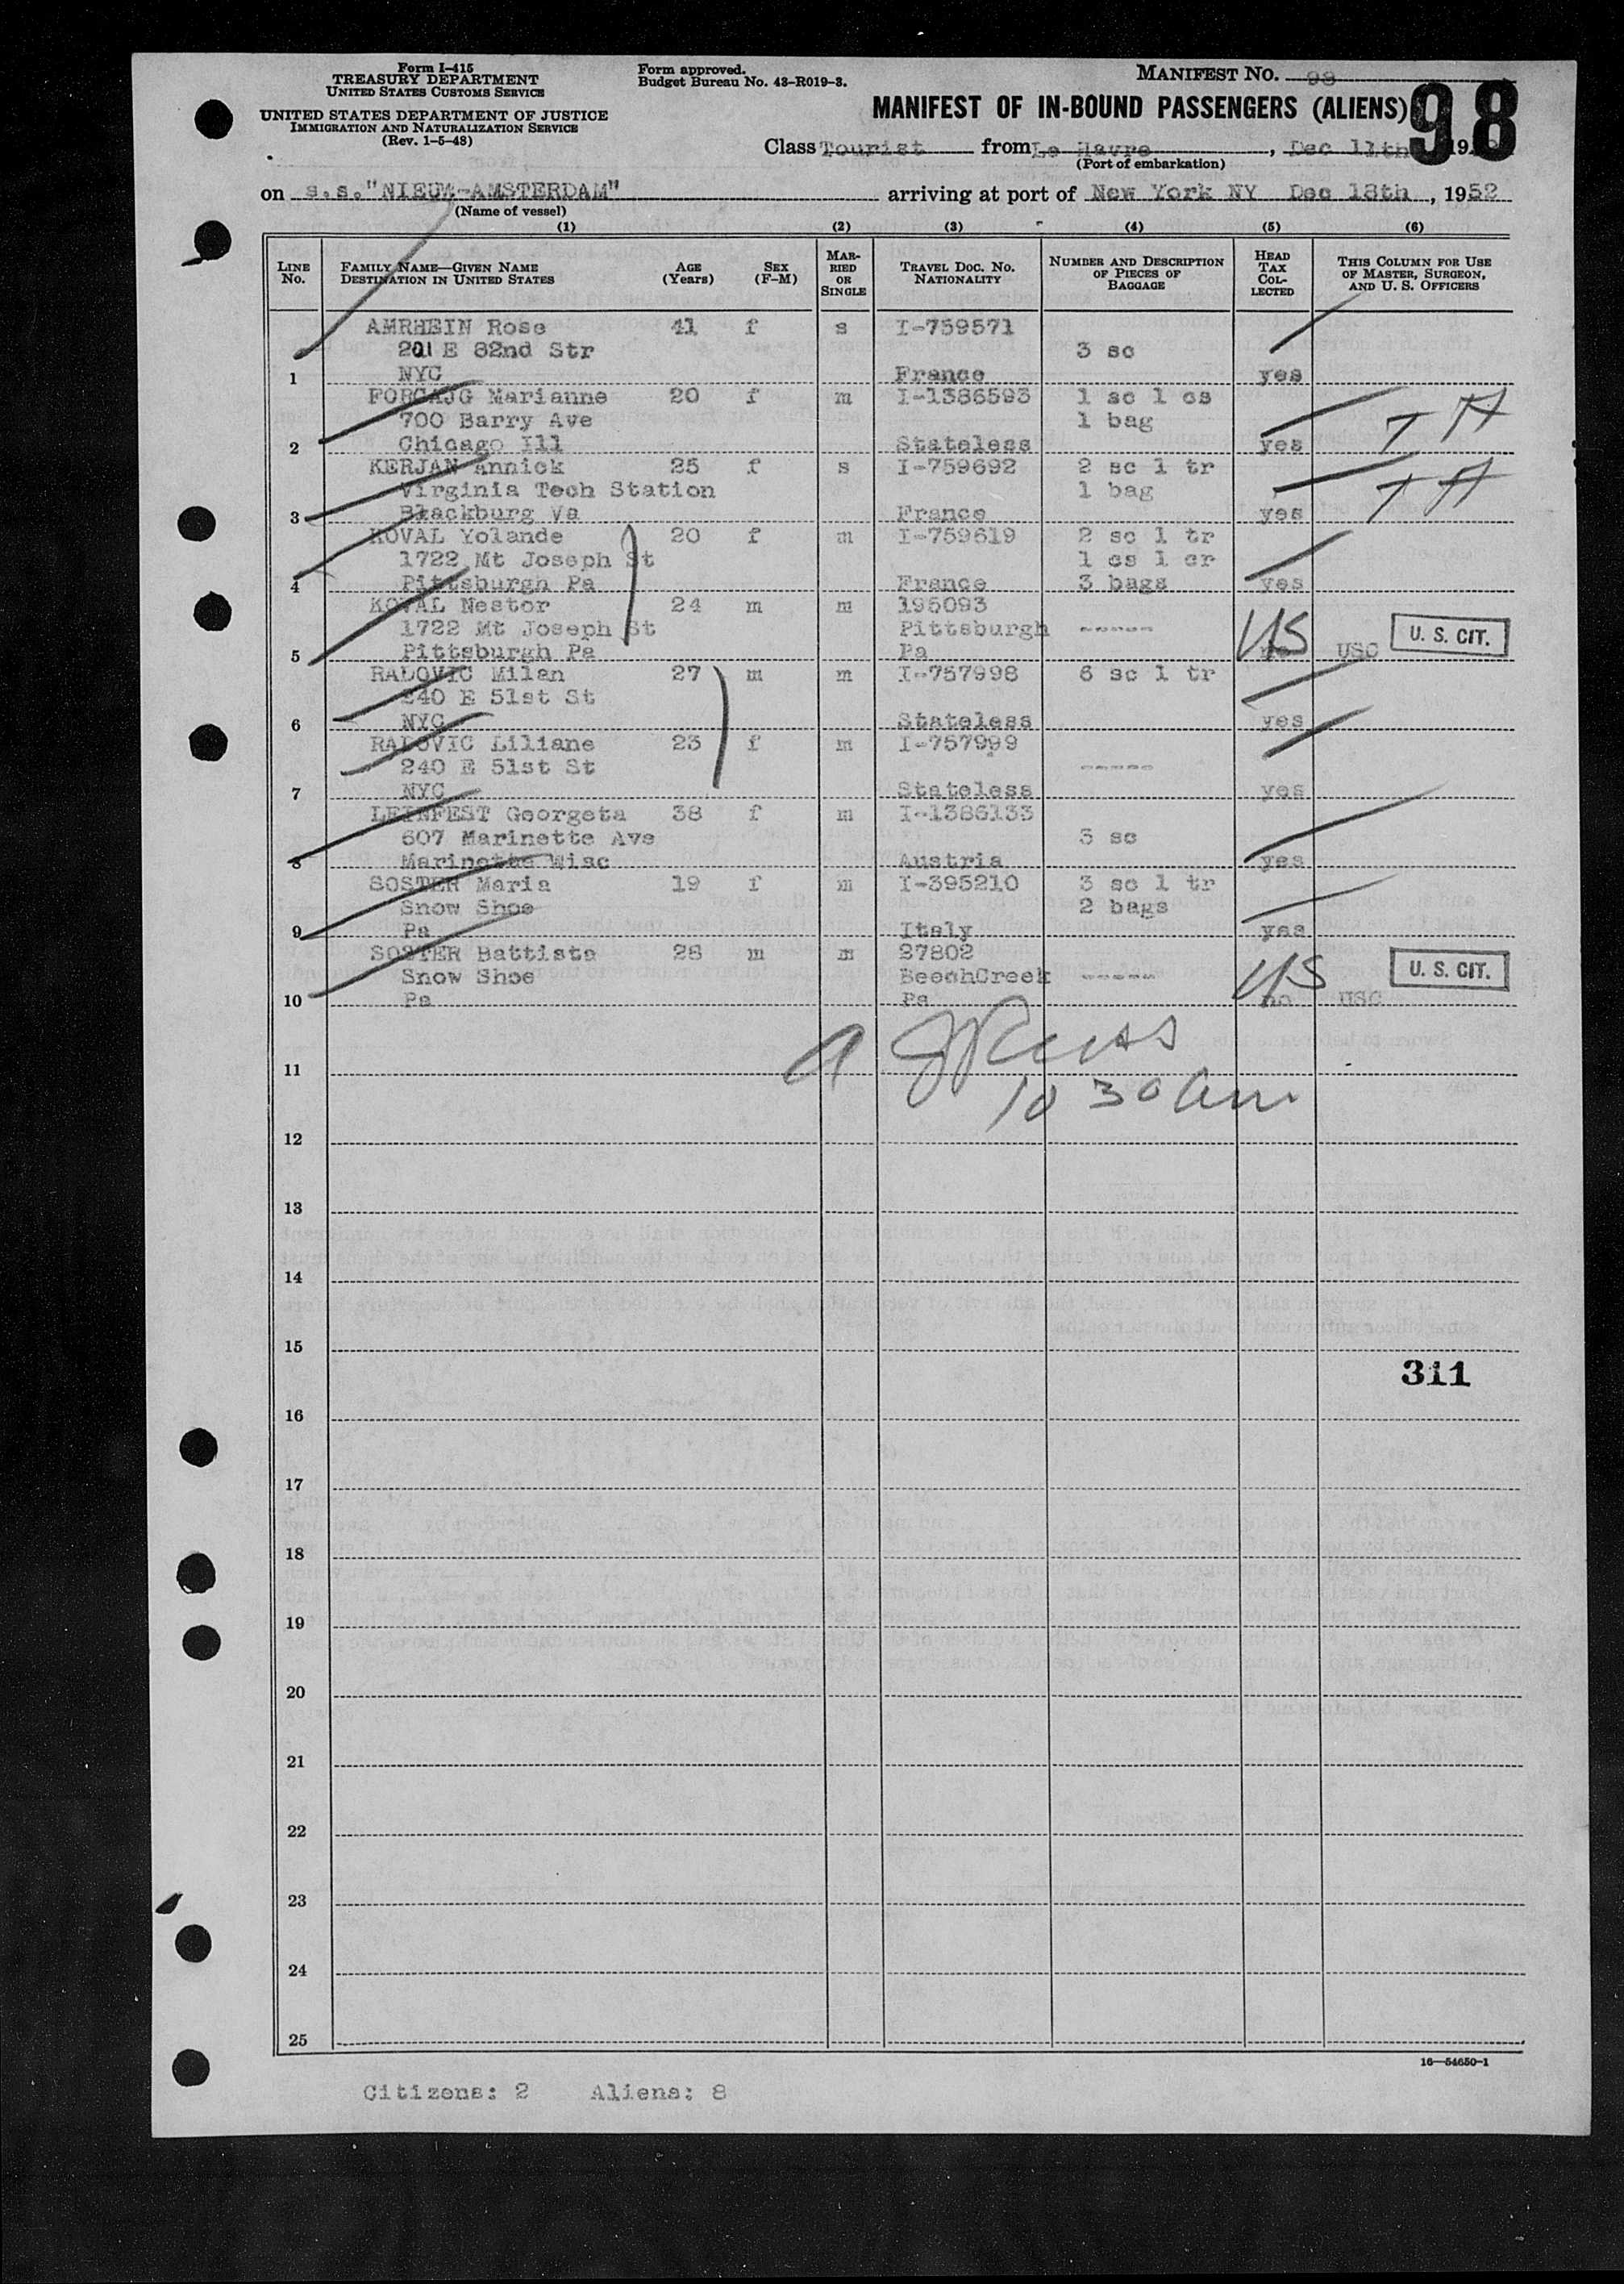 Form I-415
TREASURY DEPARTMENT
UNITED STATES CUSTOMS SERVICE
UNITED STATES DEPARTMENT OF JUSTICE
IMMIGRATION AND NATURALIZATION SERVICE
(Rev. 1-5-48)
Form approved.
Budget Bureau No. 43-R019-3.
MANIFEST NO. 98
MANIFEST OF IN-BOUND PASSENGERS (ALIENS)
98
Class Tourist from Le Havre, Dec 11th 19
(Port of embarkation)
on s.s."NIEUW-AMSTERDAM" arriving at port of New York NY Dec 18th, 1952
(Name of vessel)
(1) (2) (3) (4) (5) (6)
LINE No. FAMILY NAME—GIVEN NAME DESTINATION IN UNITED STATES AGE (Years) SEX (F-M) MARRIED OR SINGLE TRAVEL DOC. NO. NATIONALITY NUMBER AND DESCRIPTION OF PIECES OF BAGGAGE HEAD TAX COLLECTED THIS COLUMN FOR USE OF MASTER, SURGEON, AND U. S. OFFICERS
AMRHEIN Rose 41 f s I-759571
201 E 82nd Str 3 sc
1 NYC France yes
FORGAJG Marianne 20 f m I-1386593 1 sc 1 cs
700 Barry Ave 1 bag
2 Chicago Ill Stateless yes
KERJAN Annick 25 f s I-759692 2 sc 1 tr
Virginia Tech Station 1 bag
3 Blackburg Va France yes
KOVAL Yolande 20 f m I-759619 2 sc 1 tr
1722 Mt Joseph St 1 cs 1 cr
4 Pittsburgh Pa France 3 bags yes
KOVAL Nestor 24 m m 195093
1722 Mt Joseph St Pittsburgh -----
5 Pittsburgh Pa Pa US no USC U. S. CIT.
RADOVIC Milan 27 m m I-757998 6 sc 1 tr
240 E 51st St
6 NYC Stateless yes
RADOVIC Liliane 23 f m I-757999
240 E 51st St -----
7 NYC Stateless yes
LEINFEST Georgeta 38 f m I-1386133
607 Marinette Ave 3 sc
8 Marinette Wisc Austria yes
SOSTER Maria 19 f m I-395210 3 sc 1 tr
Snow Shoe 2 bags
9 Pa Italy yes
SOSTER Battista 28 m m 27802
Snow Shoe BeechCreek -----
10 Pa Pa US no USC U. S. CIT.
10 30 am
11
12
13
14
15
311
16
17
18
19
20
21
22
23
24
25
16—54650-1
Citizens: 2 Aliens: 8